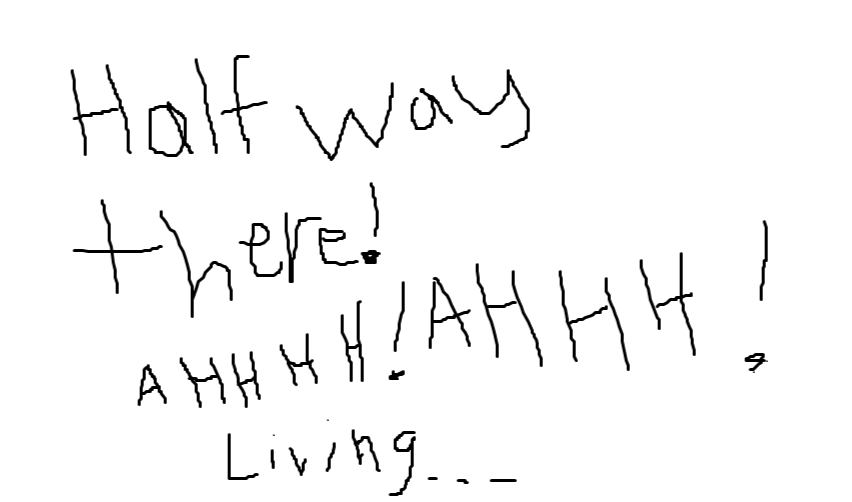 Half way
there!
AHHHH! AHHH!
Living...